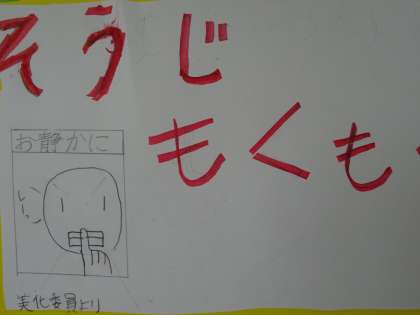 そうじ
もくも
お静かに
美化委員より